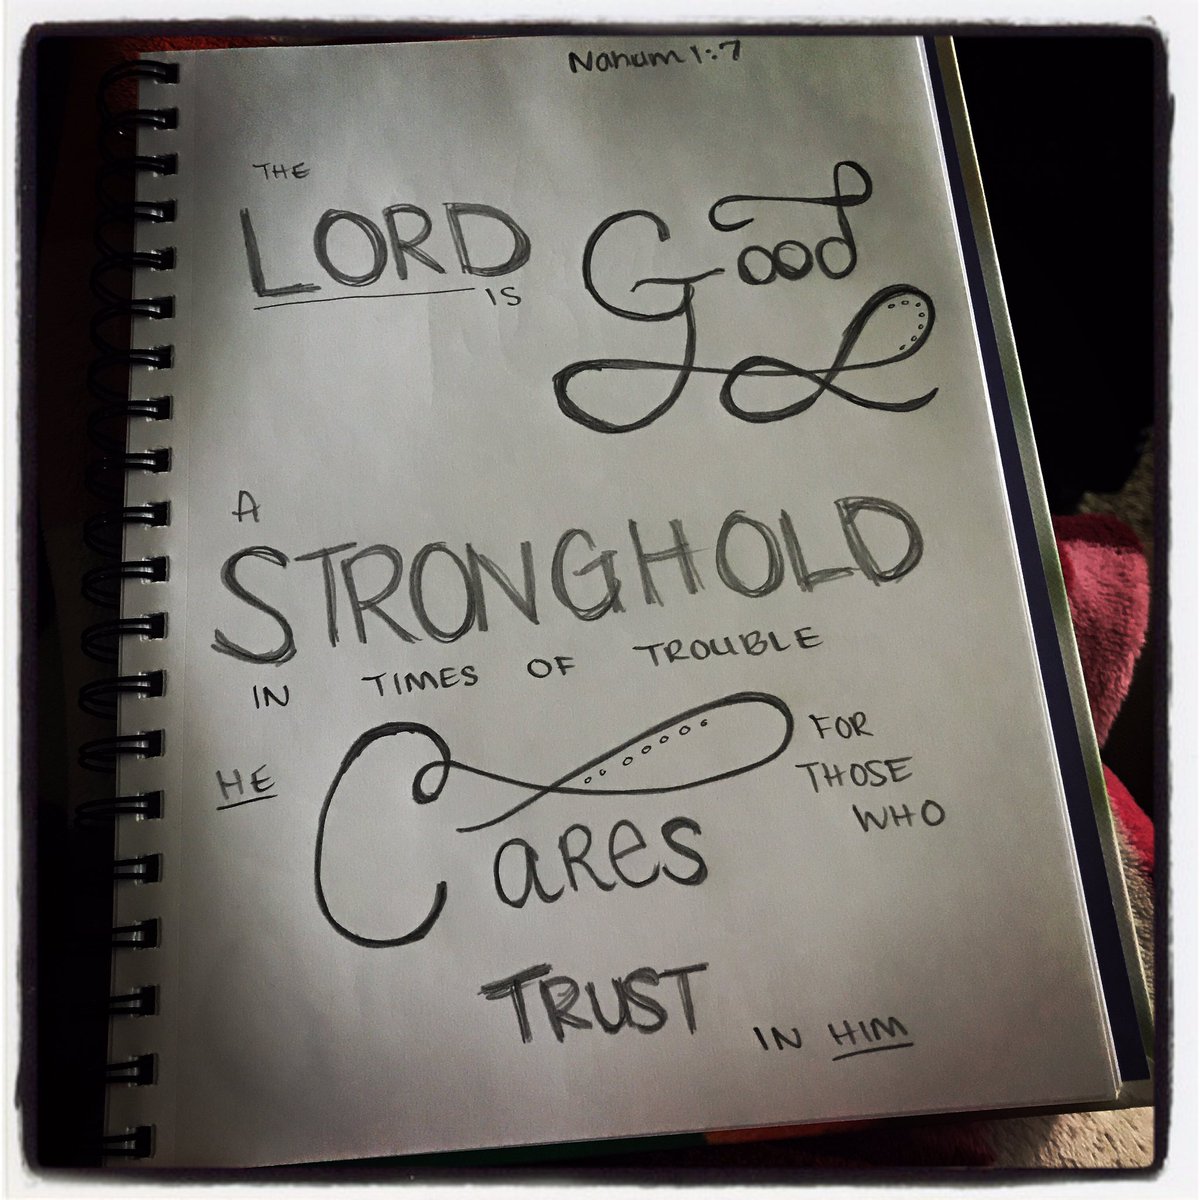 Nahum 1:7
THE
LORD IS Good
A
STRONGHOLD
IN TIMES OF TROUBLE
HE Cares FOR THOSE WHO
TRUST IN HIM